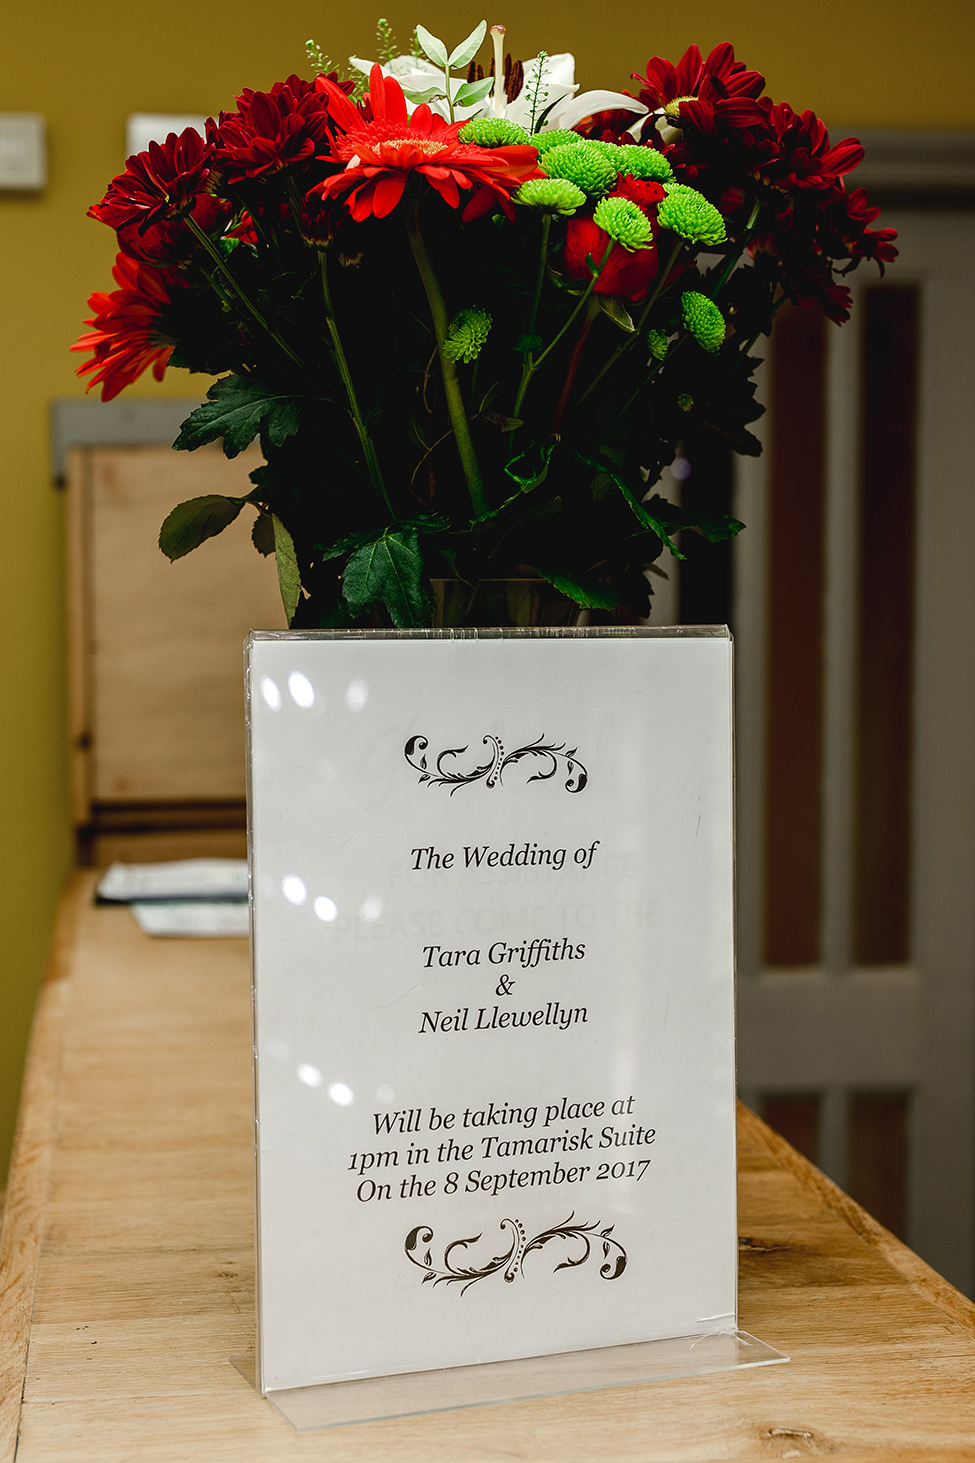 The Wedding of
Tara Griffiths
&
Neil Llewellyn
Will be taking place at
1pm in the Tamarisk Suite
On the 8 September 2017
PLEASE COME TO THE